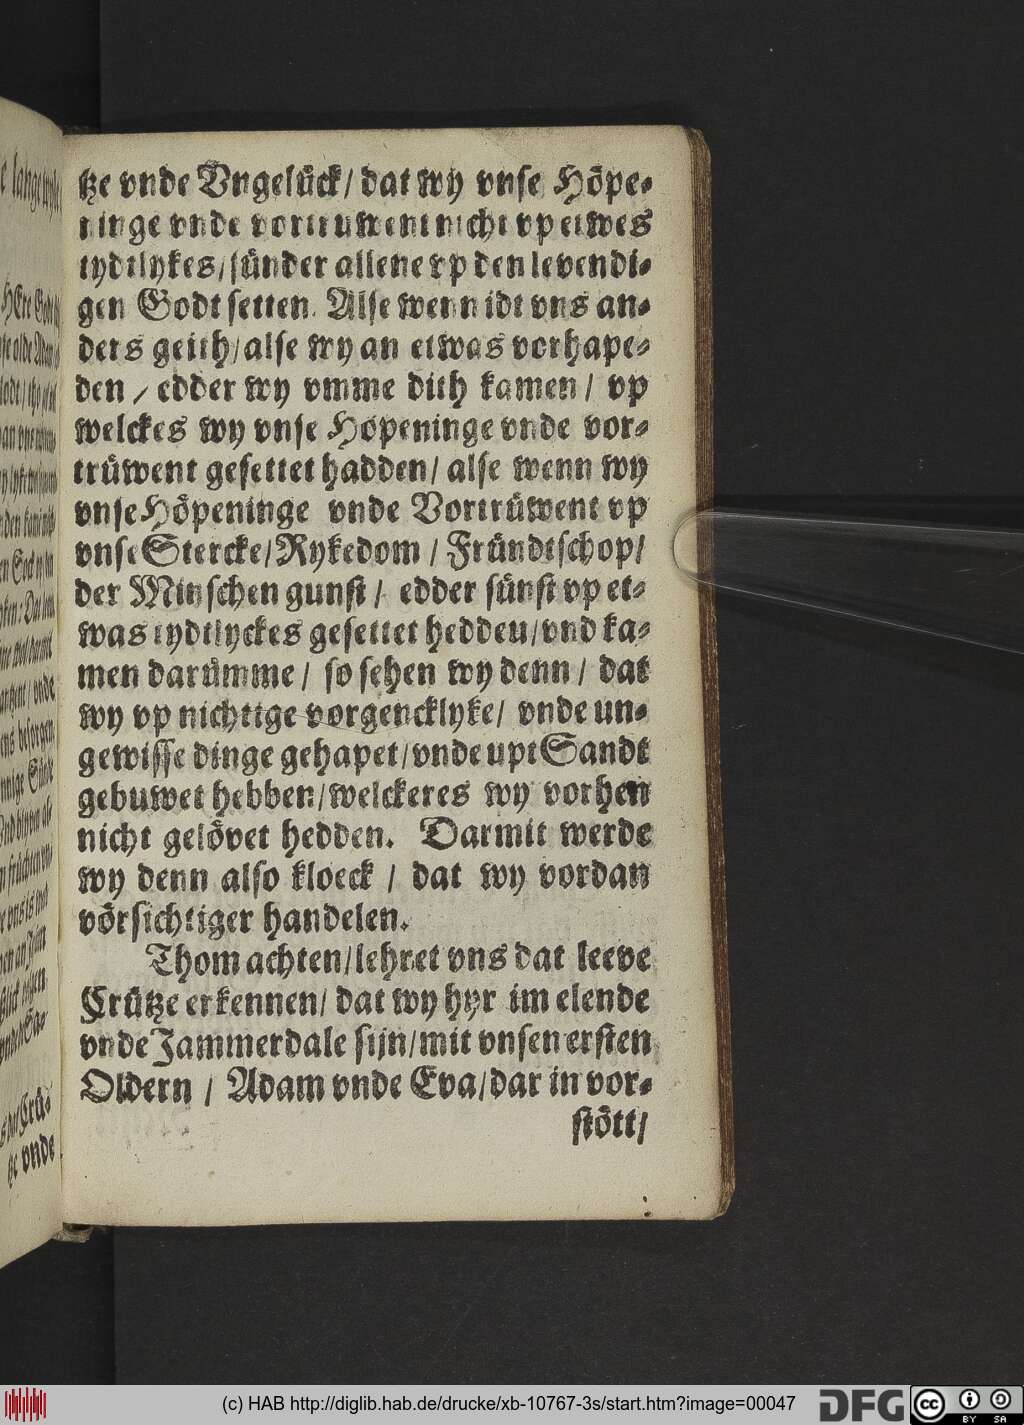 tze vnde Vngelück / dat wy vnse Höpe⸗
ninge vnde vortruwent nicht vp etwes
tydtlykes / sünder allene vp den levendi⸗
gen Godt setten. Alse wenn idt vns an⸗
ders geith / alse wy an etwas vorhape⸗
den / edder wy vmme dith kamen / vp
welckes wy vnse Höpeninge vnde vor⸗
trüwent gesettet hadden / alse wenn wy
vnse Höpeninge vnde Vortrüwent vp
vnse Stercke / Rykedom / Fründtschop /
der Minschen gunst / edder sünst vp et⸗
was tydtlyckes gesettet heddeu / vnd ka⸗
men darümme / so sehen wy denn / dat
wy vp nichtige vorgencklyke / vnde un⸗
gewisse dinge gehapet / vnde upt Sandt
gebuwet hebben / welckeres wy vorhen
nicht gelövet hedden. Darmit werde
wy denn also kloeck / dat wy vordan
vörsichtiger handelen.
Thom achten / lehret vns dat leeve
Crütze erkennen / dat wy hyr im elende
vnde Jammerdale sijn / mit vnsen ersten
Oldern / Adam vnde Eva / dar in vor⸗
stött /
(c) HAB http://diglib.hab.de/drucke/xb-10767-3s/start.htm?image=00047
DFG
cc BY SA